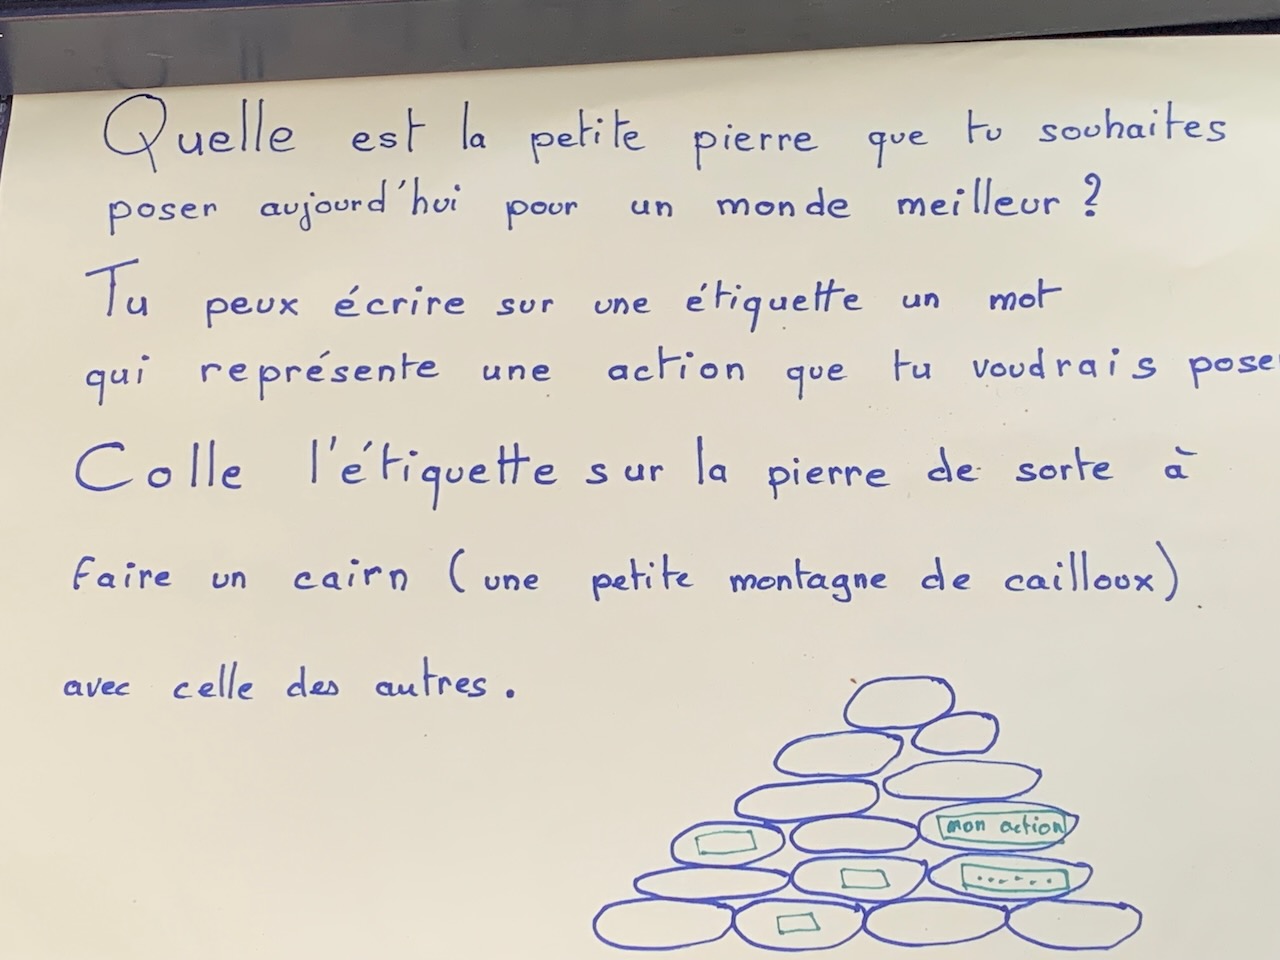 Quelle est la petite pierre que tu souhaites
poser aujourd'hui pour un monde meilleur ?
Tu peux écrire sur une étiquette un mot
qui représente une action que tu voudrais pose
Colle l'étiquette sur la pierre de sorte à
faire un cairn (une petite montagne de cailloux)
avec celle des autres.
mon action